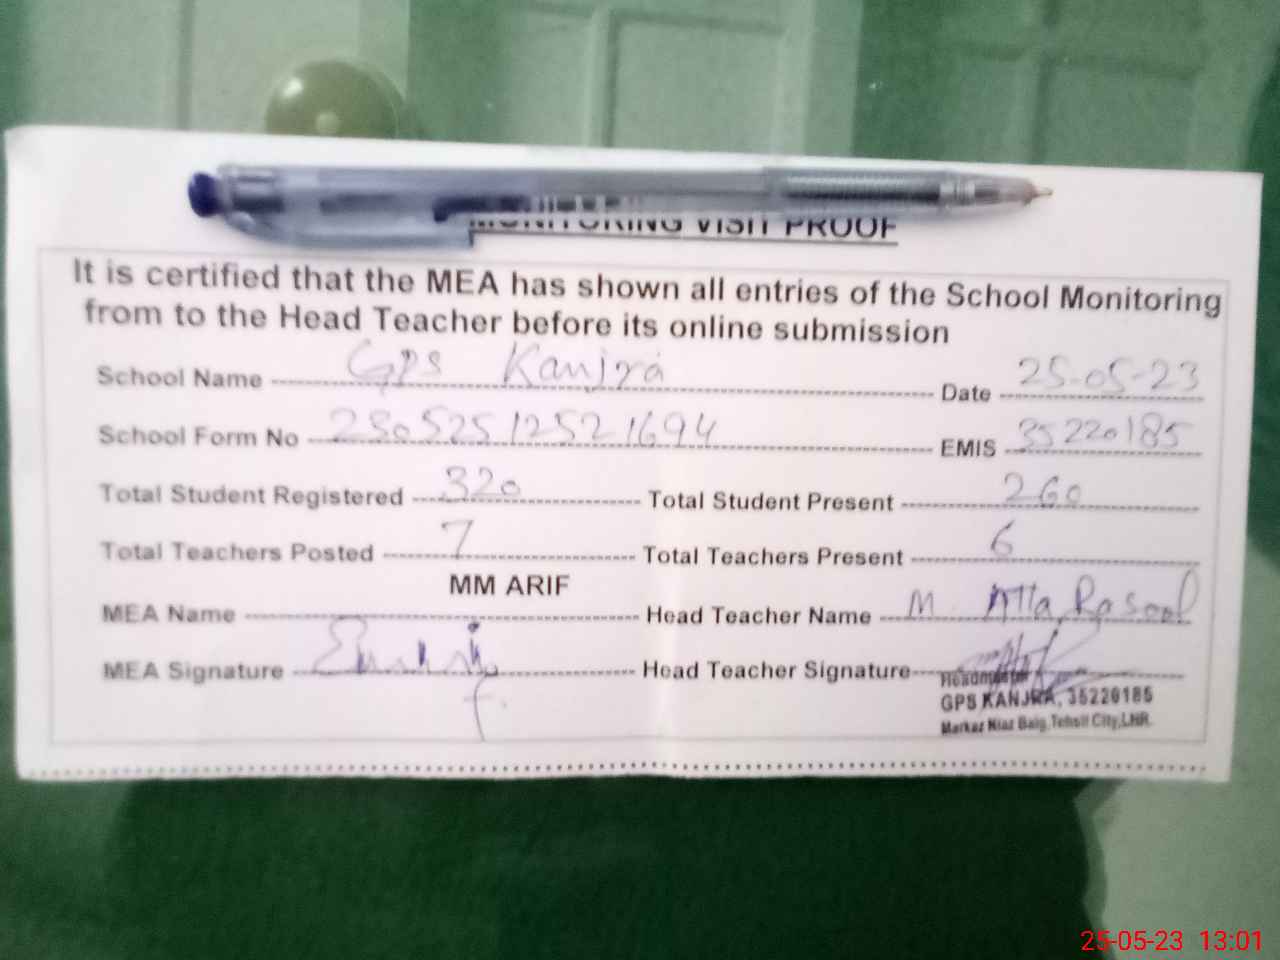 MONITORING VISIT PROOF
It is certified that the MEA has shown all entries of the School Monitoring
from to the Head Teacher before its online submission
School Name GPS Kanjra Date 25-05-23
School Form No 23052512521694 EMIS 35220185
Total Student Registered 320 Total Student Present 260
Total Teachers Posted 7 Total Teachers Present 6
MM ARIF
MEA Name Head Teacher Name M Atta Rasool
MEA Signature Head Teacher Signature
Headmaster
GPS KANJRA, 35220185
Markaz Niaz Baig, Tehsil City, LHR.
25-05-23 13:01